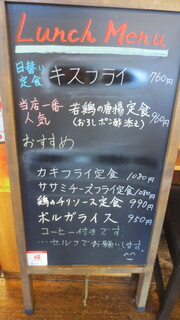 Lunch Menu
日替り定食 キスフライ 760円
当店一番人気 若鶏の唐揚定食 960円
(おろしポン酢添え)
おすすめ
カキフライ定食 1080円
ササミチーズフライ定食 1080円
鶏のチリソース定食 990円
ボルガライス 950円
コーヒー付きです
…セルフでお願いします。